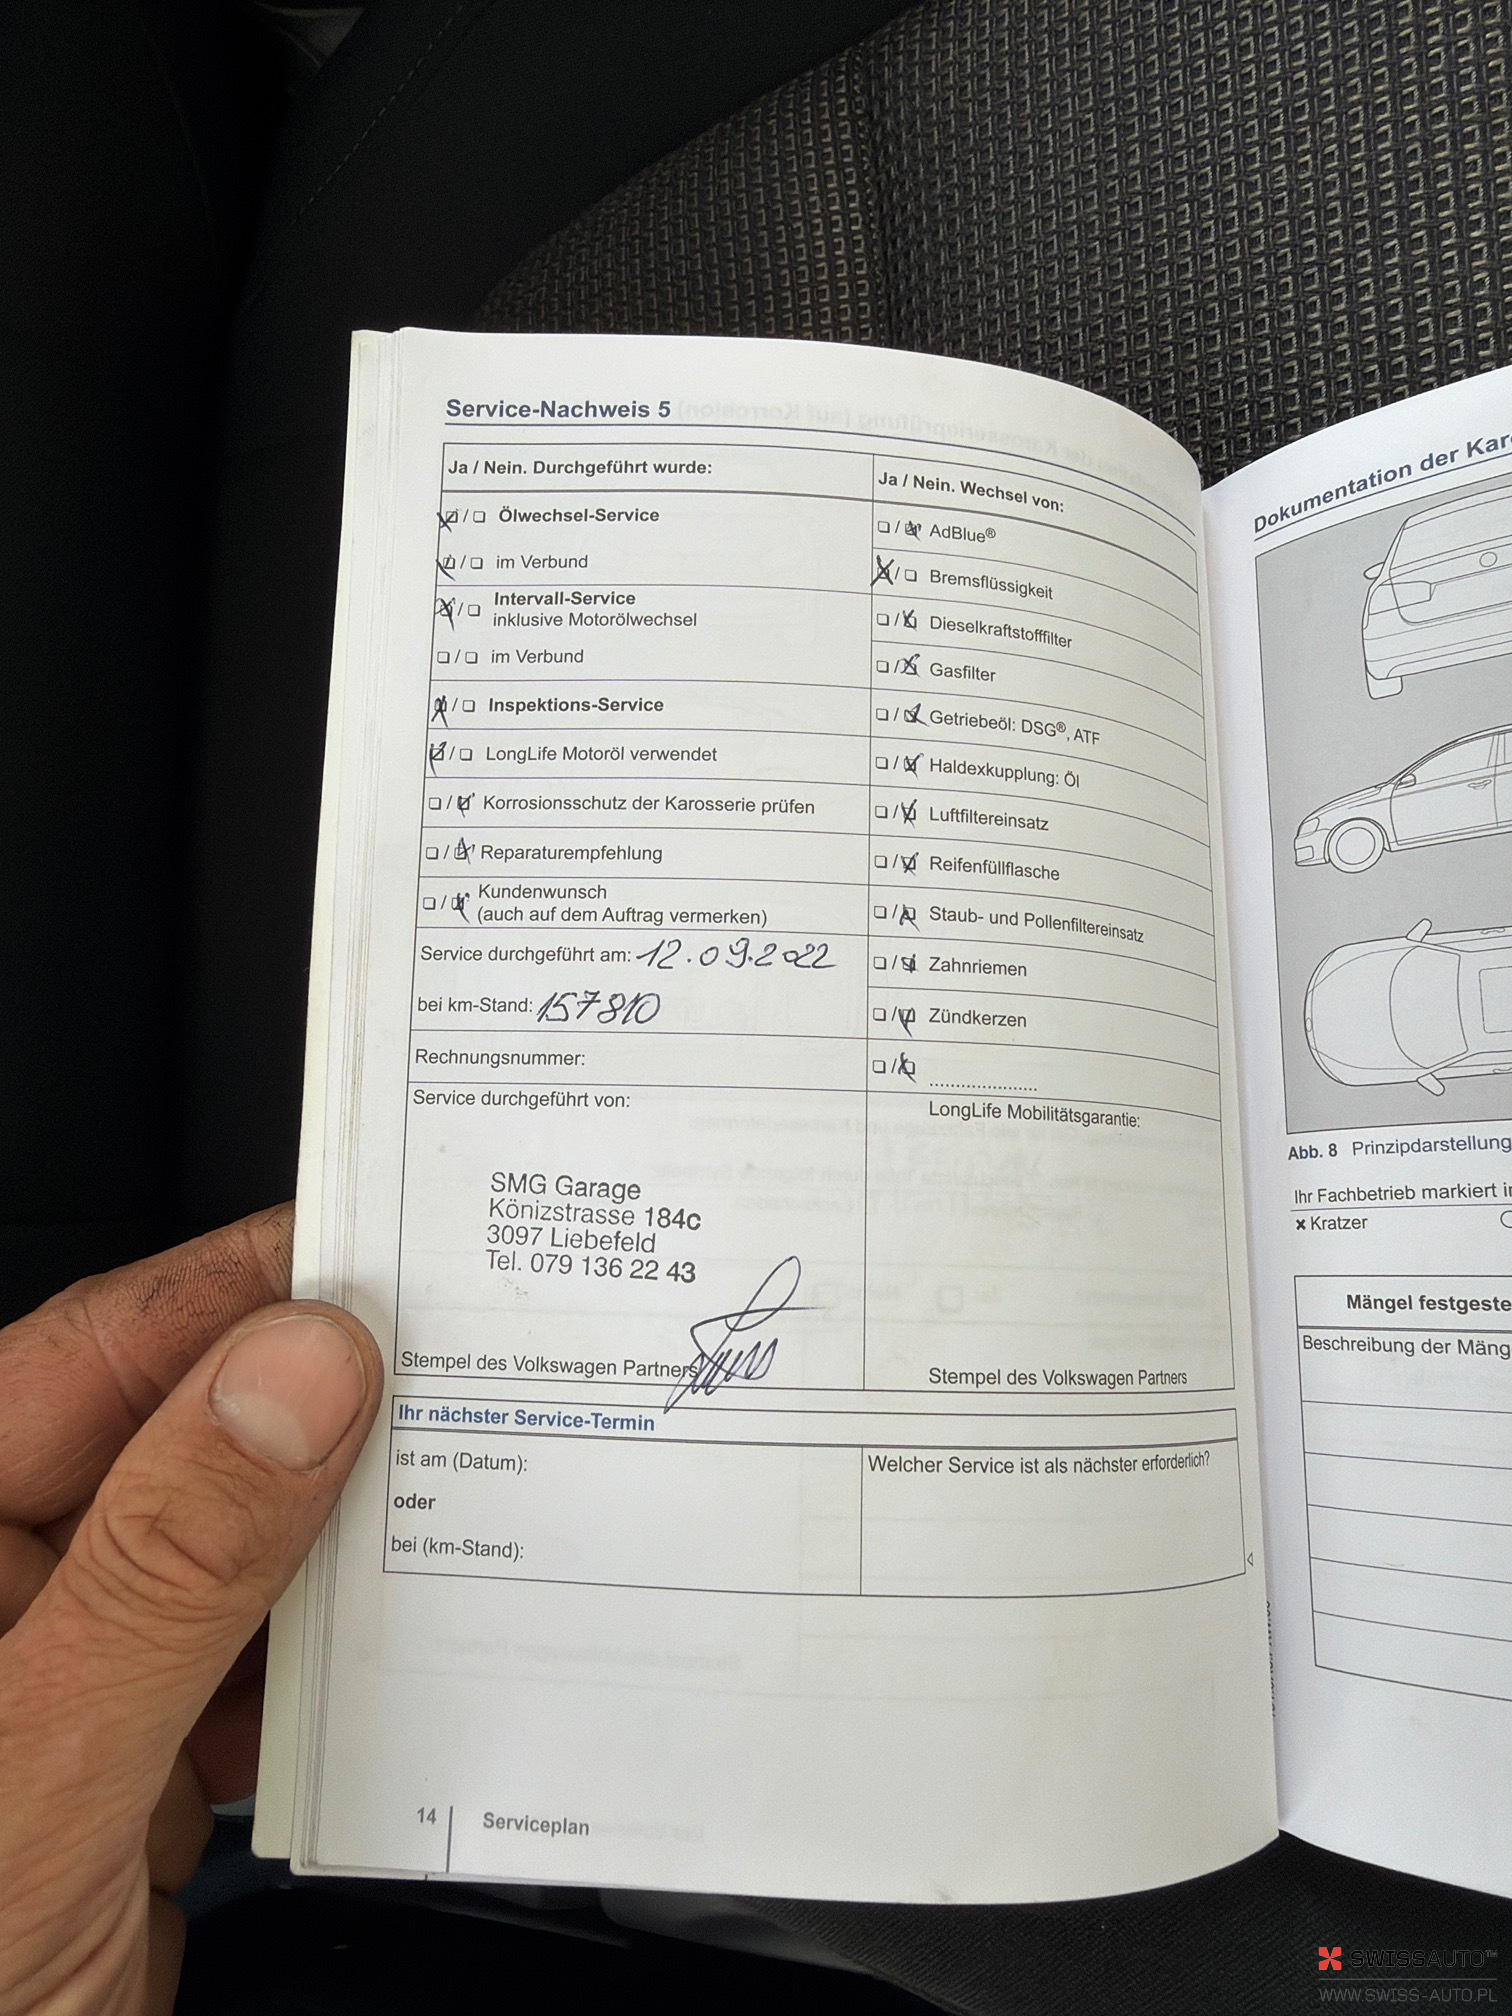 Service-Nachweis 5
Ja / Nein. Durchgeführt wurde:
☒/☐ Ölwechsel-Service
☒/☐ im Verbund
☒/☐ Intervall-Service
inklusive Motorölwechsel
☐/☐ im Verbund
☒/☐ Inspektions-Service
☒/☐ LongLife Motoröl verwendet
☐/☒ Korrosionsschutz der Karosserie prüfen
☐/☒ Reparaturempfehlung
☐/☒ Kundenwunsch
(auch auf dem Auftrag vermerken)
Service durchgeführt am: 12.09.2022
bei km-Stand: 157810
Rechnungsnummer:
Service durchgeführt von:
SMG Garage
Könizstrasse 184c
3097 Liebefeld
Tel. 079 136 22 43
Stempel des Volkswagen Partners
Ja / Nein. Wechsel von:
☐/☒ AdBlue®
☒/☐ Bremsflüssigkeit
☐/☒ Dieselkraftstofffilter
☐/☒ Gasfilter
☐/☒ Getriebeöl: DSG®, ATF
☐/☒ Haldexkupplung: Öl
☐/☒ Luftfiltereinsatz
☐/☒ Reifenfüllflasche
☐/☒ Staub- und Pollenfiltereinsatz
☐/☒ Zahnriemen
☐/☒ Zündkerzen
☐/☒ .....................
LongLife Mobilitätsgarantie:
Stempel des Volkswagen Partners
Ihr nächster Service-Termin
ist am (Datum):
oder
bei (km-Stand):
Welcher Service ist als nächster erforderlich?
14 Serviceplan
Dokumentation der Kar
Abb. 8 Prinzipdarstellung
Ihr Fachbetrieb markiert i
× Kratzer
Mängel festgeste
Beschreibung der Mäng
SWISSAUTO™
WWW.SWISS-AUTO.PL